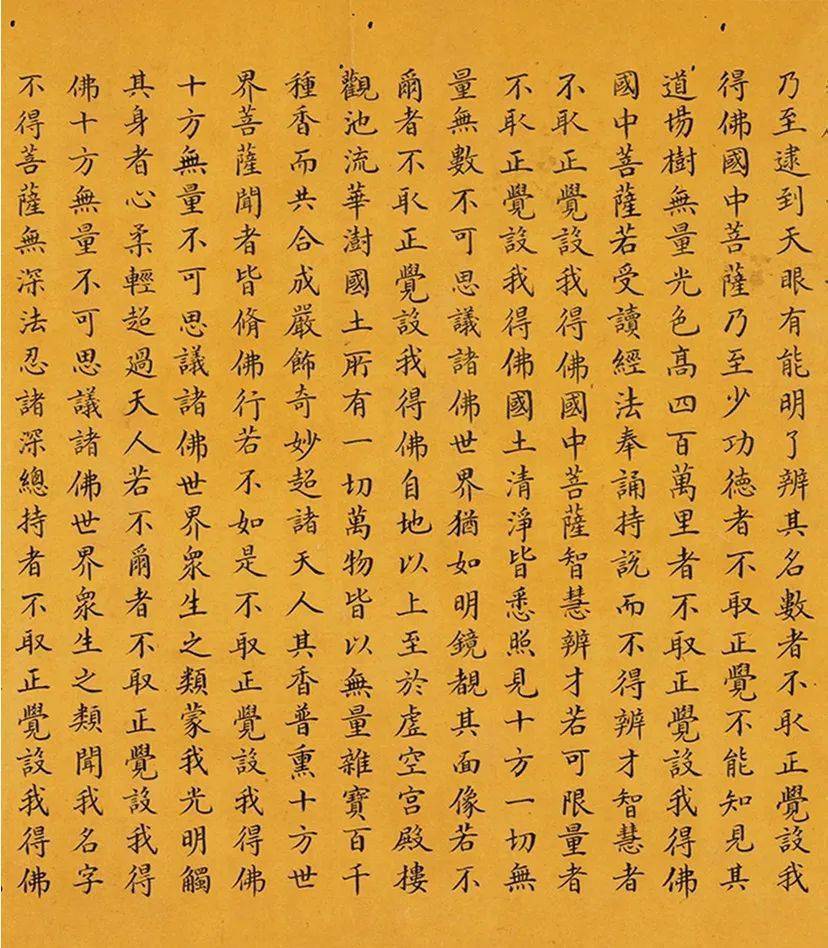 乃至逮到天眼有能明了辨其名數者不取正覺設我
得佛國中菩薩乃至少功德者不取正覺不能知見其
道場樹無量光色高四百萬里者不取正覺設我得佛
國中菩薩若受讀經法奉誦持說而不得辨才智慧者
不取正覺設我得佛國中菩薩智慧辨才若可限量者
不取正覺設我得佛國土清淨皆悉照見十方一切無
量無數不可思議諸佛世界猶如明鏡覩其面像若不
爾者不取正覺設我得佛自地以上至於虛空宮殿樓
觀池流華樹國土所有一切萬物皆以無量雜寶百千
種香而共合成嚴飾奇妙超諸天人其香普熏十方世
界菩薩聞者皆脩佛行若不如是不取正覺設我得佛
十方無量不可思議諸佛世界衆生之類蒙我光明觸
其身者心柔輕超過天人若不爾者不取正覺設我得
佛十方無量不可思議諸佛世界衆生之類聞我名字
不得菩薩無深法忍諸深總持者不取正覺設我得佛